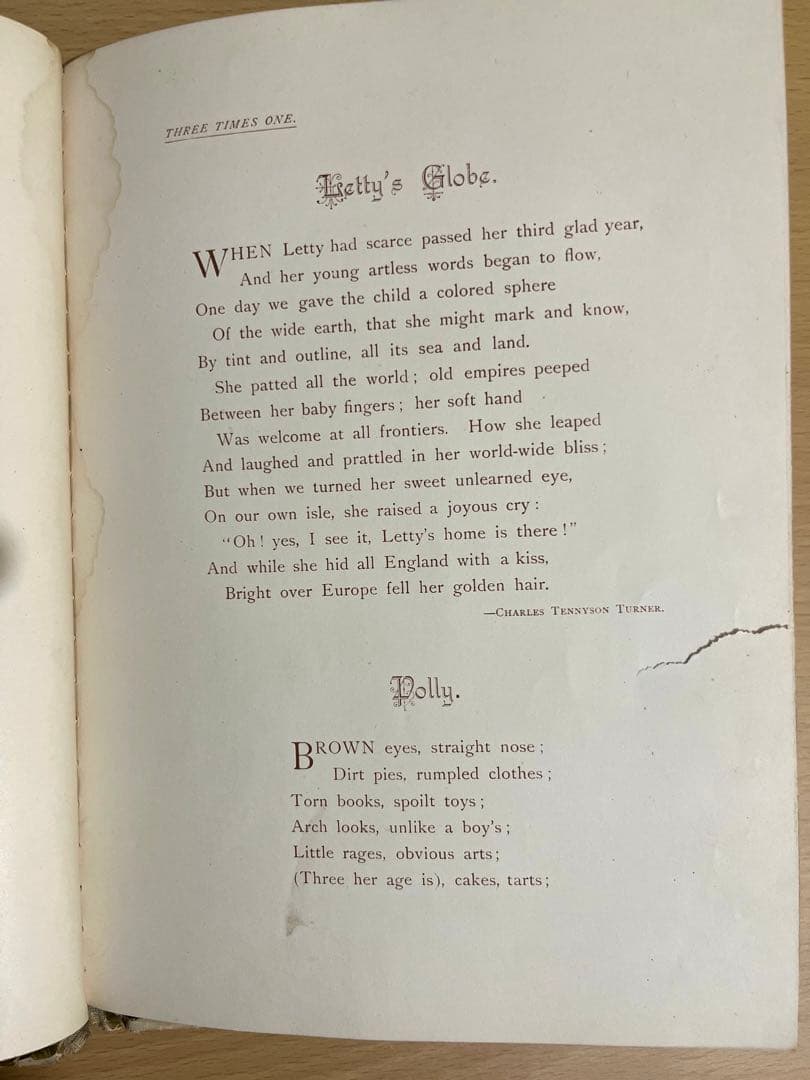 THREE TIMES ONE.
Letty's Globe.
WHEN Letty had scarce passed her third glad year,
And her young artless words began to flow,
One day we gave the child a colored sphere
Of the wide earth, that she might mark and know,
By tint and outline, all its sea and land.
She patted all the world; old empires peeped
Between her baby fingers; her soft hand
Was welcome at all frontiers. How she leaped
And laughed and prattled in her world-wide bliss;
But when we turned her sweet unlearned eye,
On our own isle, she raised a joyous cry:
"Oh! yes, I see it, Letty's home is there!"
And while she hid all England with a kiss,
Bright over Europe fell her golden hair.
—CHARLES TENNYSON TURNER.
Polly.
BROWN eyes, straight nose;
Dirt pies, rumpled clothes;
Torn books, spoilt toys;
Arch looks, unlike a boy's;
Little rages, obvious arts;
(Three her age is), cakes, tarts;